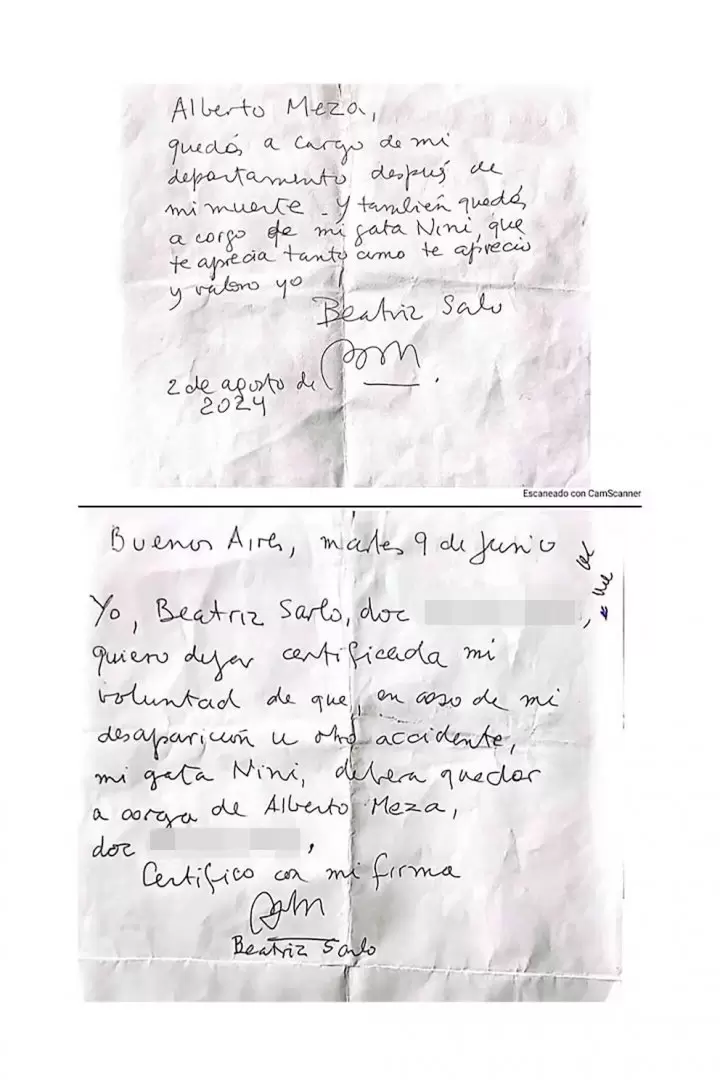 Alberto Meza,
quedás a cargo de mi
departamento después de
mi muerte. Y también quedás
a cargo de mi gata Nini, que
te aprecia tanto como te aprecio
y valoro yo
Beatriz Sarlo
2 de agosto de
2024
Escaneado con CamScanner
Buenos Aires, martes 9 de Junio
Yo, Beatriz Sarlo, doc
quiero dejar certificada mi
voluntad de que, en caso de mi
desaparición u otro accidente,
mi gata Nini, debera quedar
a cargo de Alberto Meza,
doc
Certifico con mi firma
Beatriz Sarlo